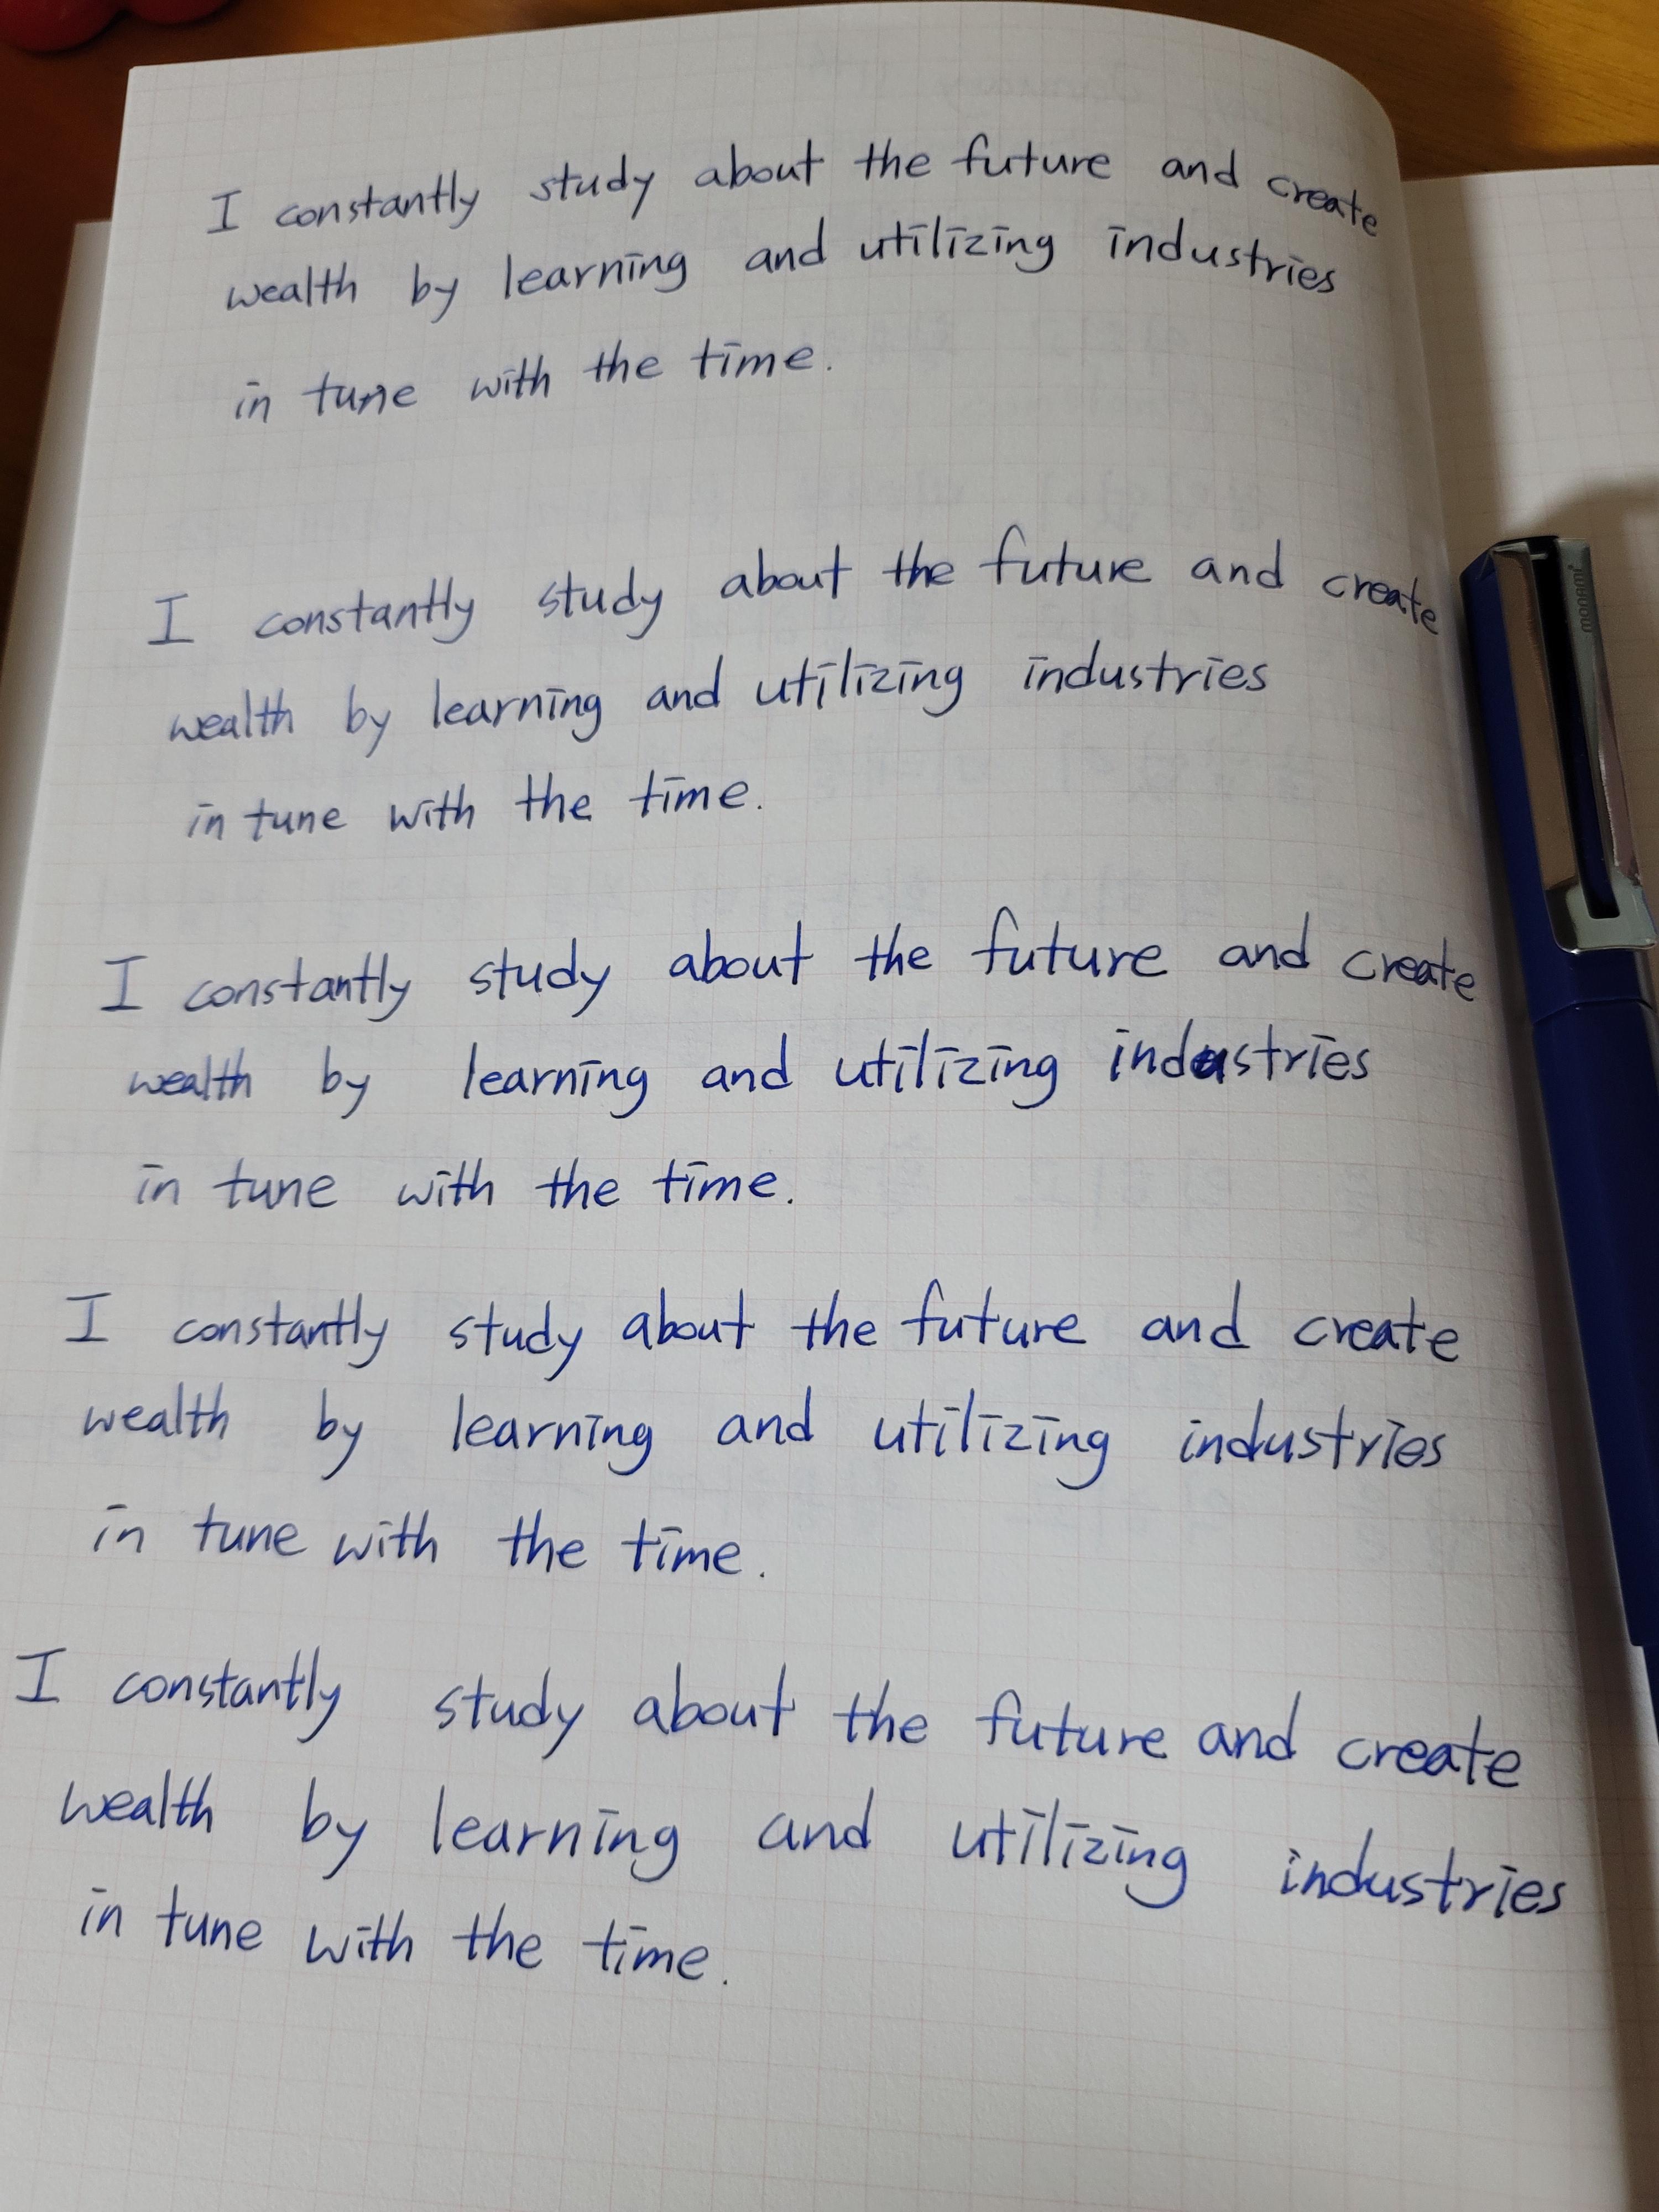 I constantly study about the future and create
wealth by learning and utilizing industries
in tune with the time.
I constantly study about the future and create
wealth by learning and utilizing industries
in tune with the time.
I constantly study about the future and create
wealth by learning and utilizing industries
in tune with the time.
I constantly study about the future and create
wealth by learning and utilizing industries
in tune with the time.
I constantly study about the future and create
wealth by learning and utilizing industries
in tune with the time.
monami